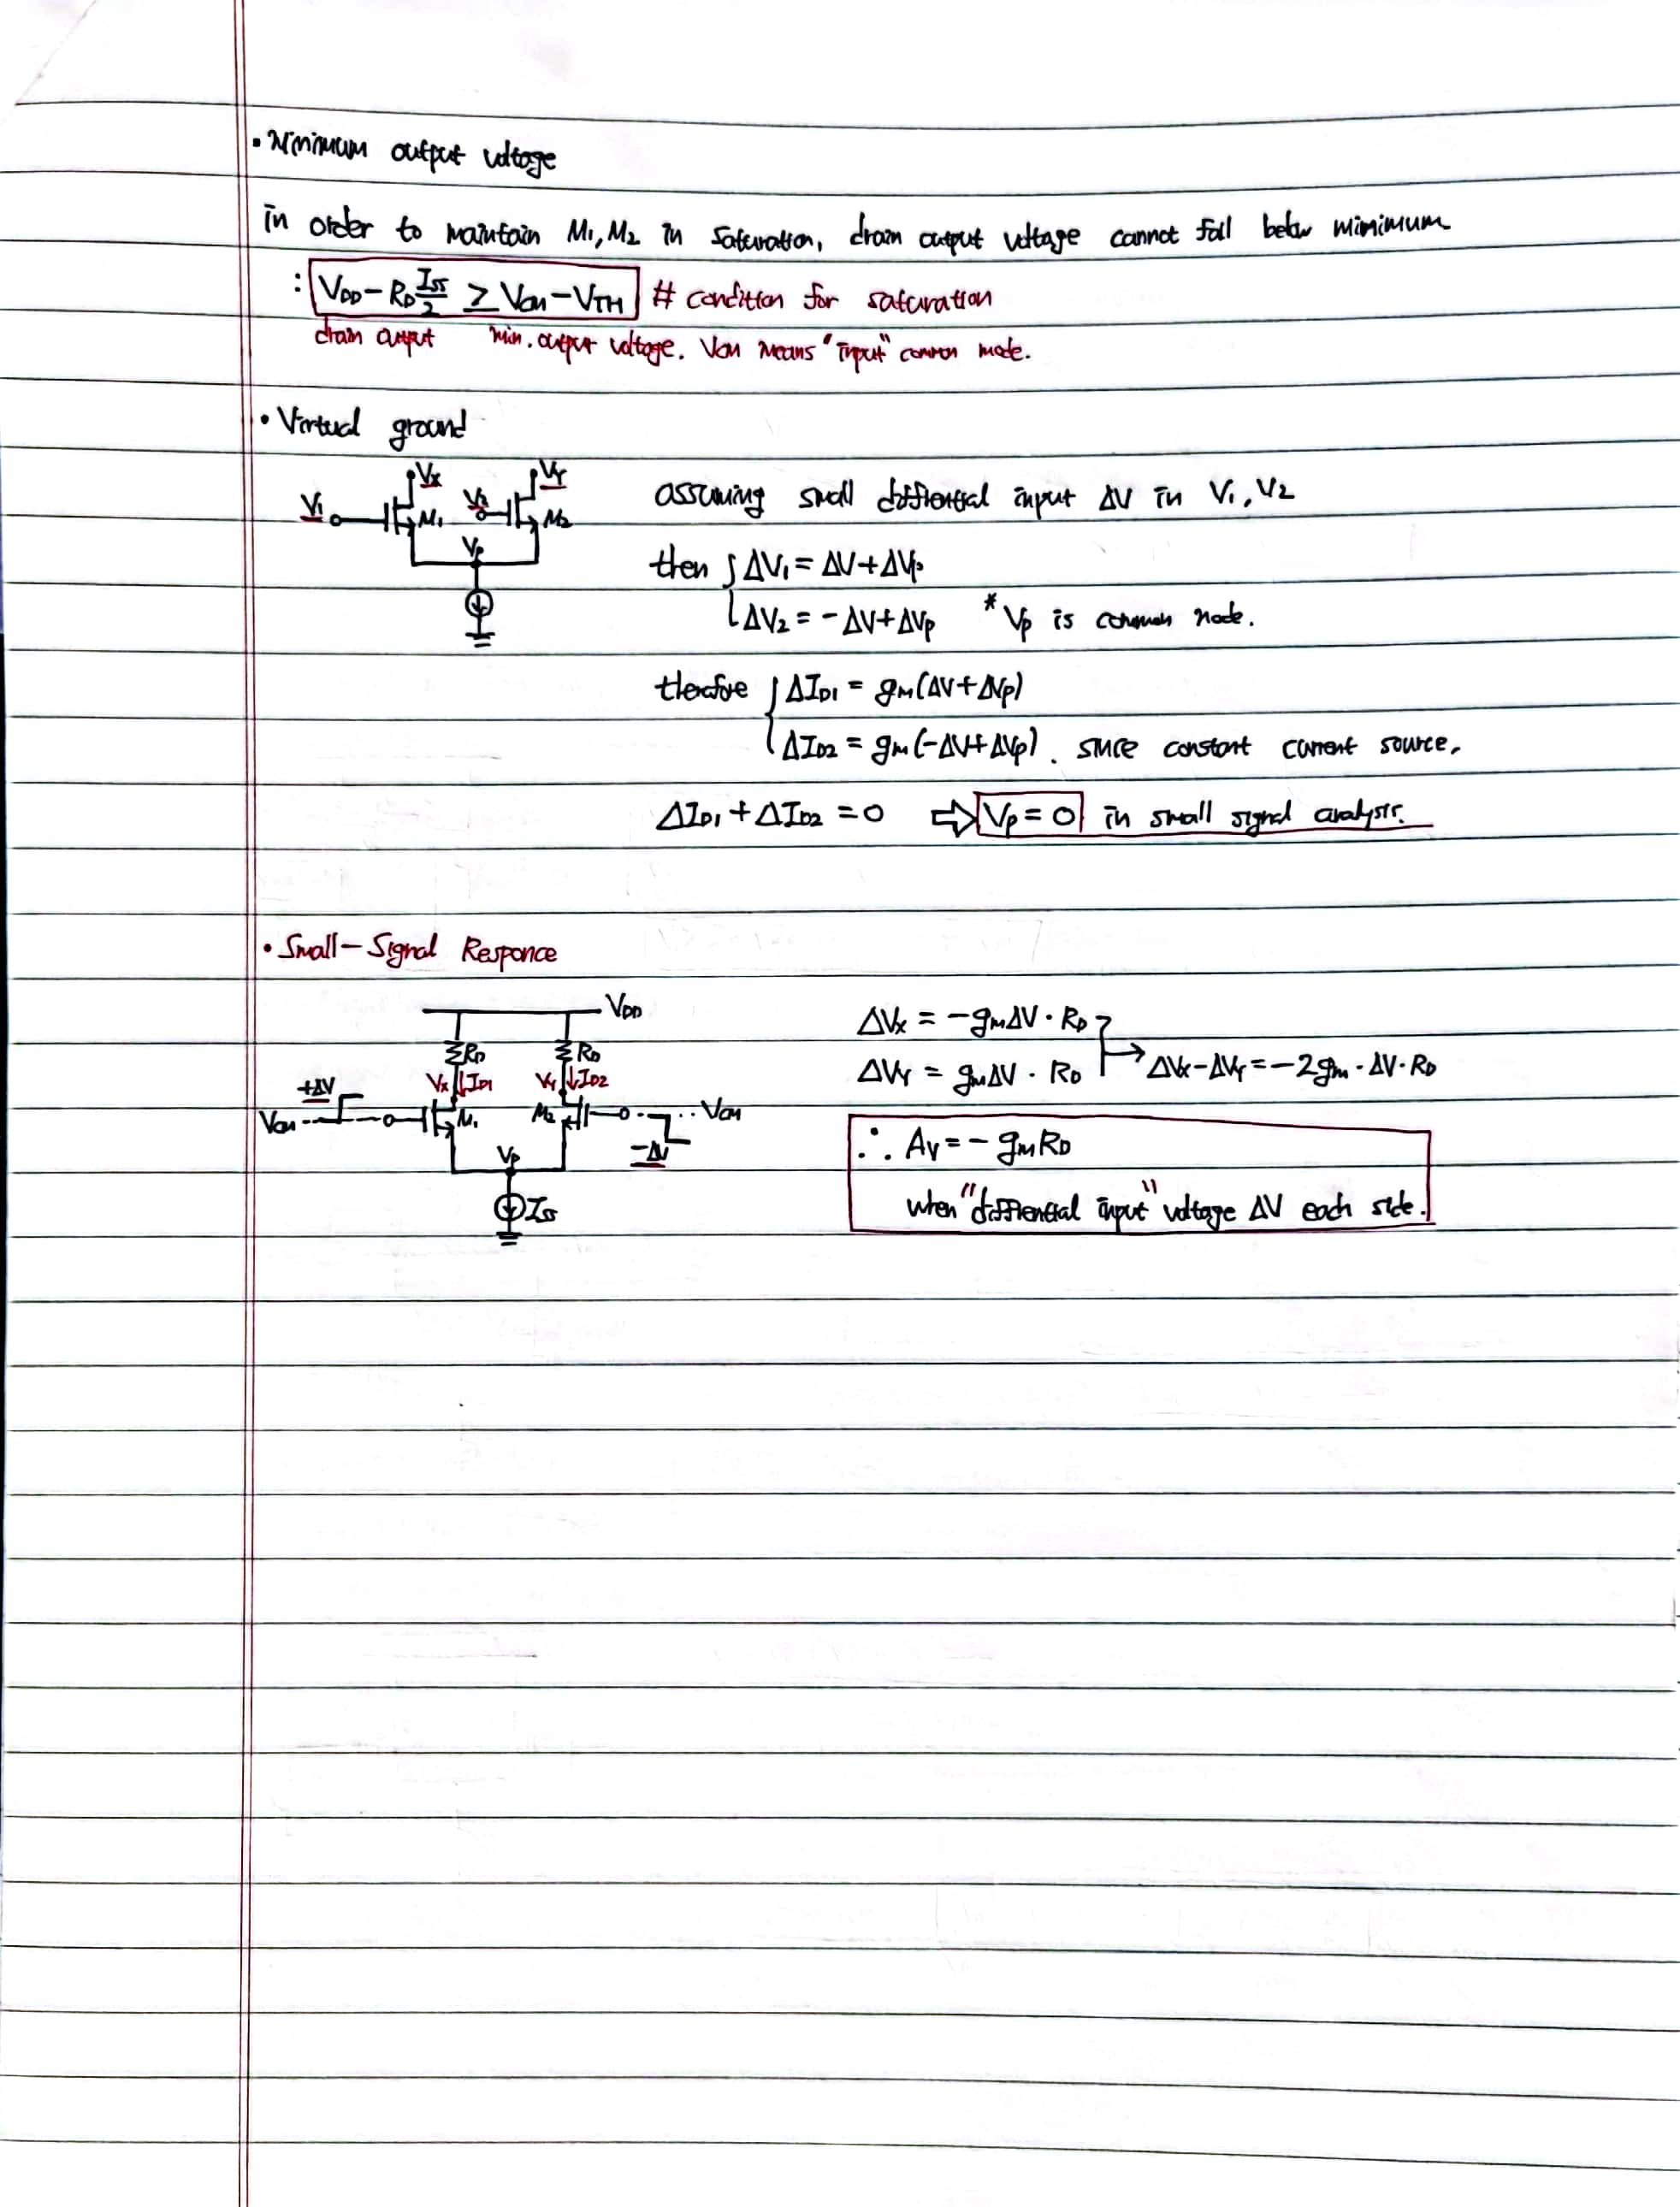 • Minimum output voltage
in order to maintain M1, M2 in saturation, drain output voltage cannot fall below mimimum
: VDD - RD ISS/2 ≥ VCM - VTH # condition for saturation
drain output min. output voltage. VCM means "input" common mode.
• Virtual ground
VX VY
V1 M1 V2 M2
VP
assuming small differential input ΔV in V1, V2
then { ΔV1 = ΔV + ΔVP
ΔV2 = -ΔV + ΔVP * VP is common node.
therefore { ΔID1 = gm(ΔV + ΔVP)
ΔID2 = gm(-ΔV + ΔVP). since constant current source,
ΔID1 + ΔID2 = 0 ⇒ VP = 0 in small signal analysis.
• Small-Signal Responce
VDD
RD RD
VX ↓ID1 VY ↓ID2
+ΔV
VCM M1 M2 VCM
-ΔV
VP
ISS
ΔVX = -gmΔV · RD
ΔVY = gmΔV · RD → ΔVX - ΔVY = -2gm · ΔV · RD
∴ AV = - gmRD
when "differential input" voltage ΔV each side.